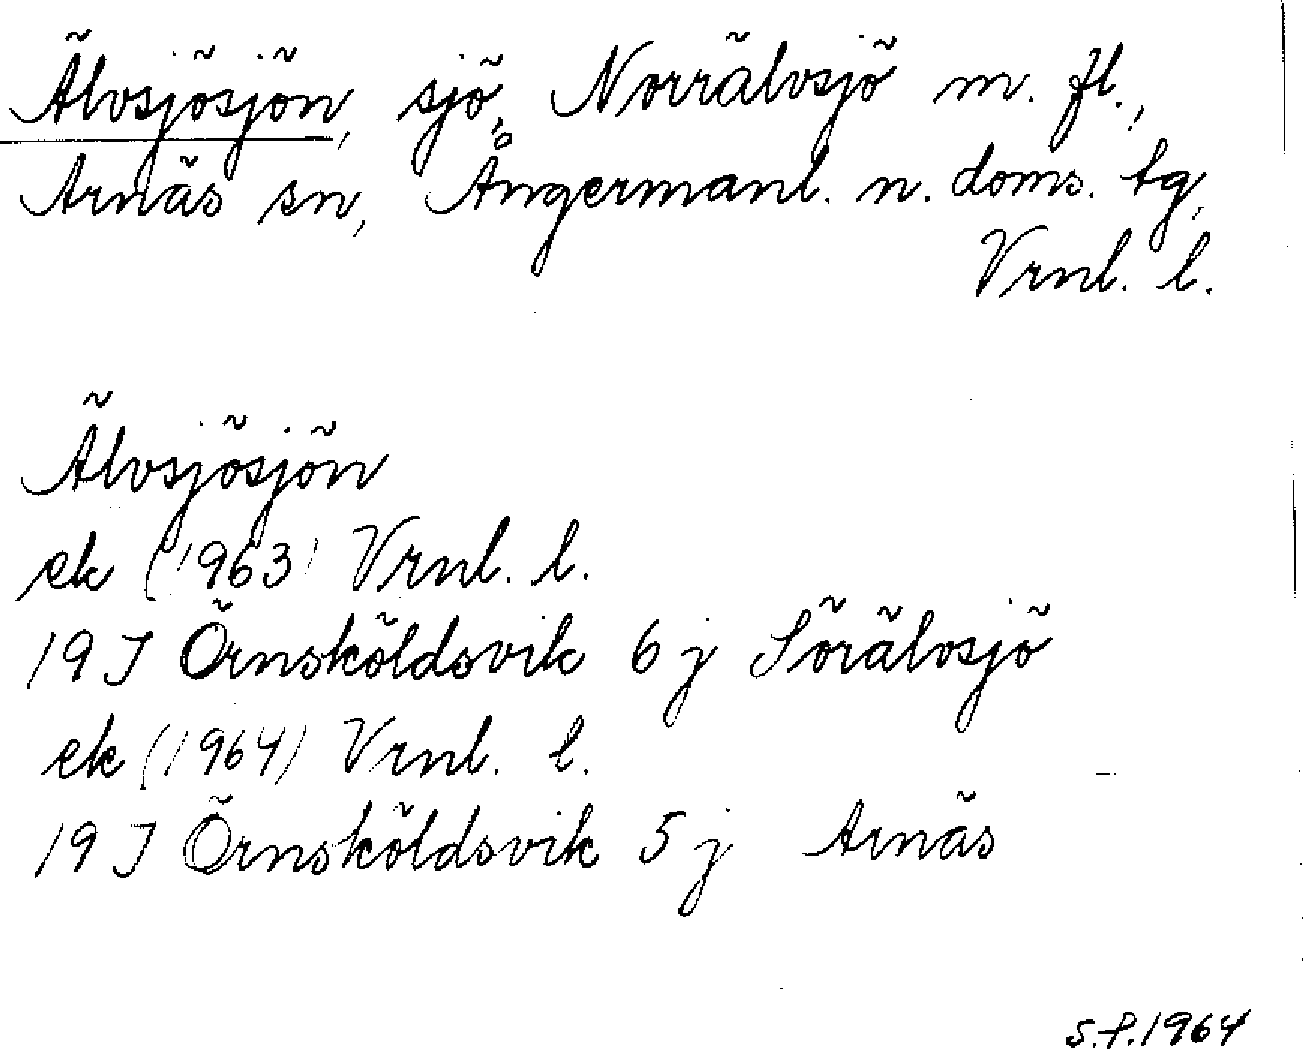 Älvsjösjön, sjö, Norrälvsjö m. fl.,
Arnäs sn, Ångermanl. n. doms. tg,
Vrnl. l.
Älvsjösjön
ek (1963) Vrnl. l.
19 J Örnsköldsvik 6 j Sörälvsjö
ek (1964) Vrnl. l.
19 J Örnsköldsvik 5 j Arnäs
S.P. 1964